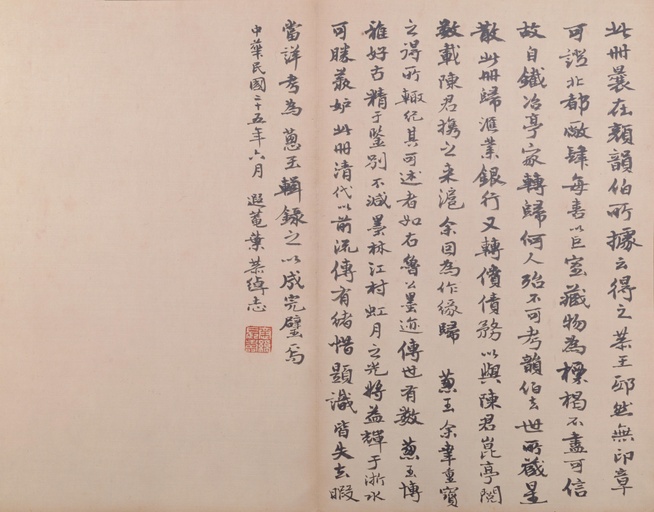 此冊曩在顏韻伯所據云得之某王邸然無印章
可證北都廠肆每喜以巨室藏物為標榜不盡可信
故自鐵冶亭家轉歸何人殆不可考韻伯去世所藏星
散此冊歸滙業銀行又轉償債務以與陳君崑亭閱
數載陳君攜之來滬余因為作緣歸 蔥玉余幸重寶
之得所輒紀其可述者如右魯公墨迹傳世有數 蔥玉博
雅好古精于鑒別不減墨林江村虹月之光將益輝于浙水
可勝羨妒此冊清代以前流傳有緒惜題識皆失去暇
當詳考為蔥玉輯錄之以成完璧焉
中華民國二十五年六月 遐菴葉恭綽志